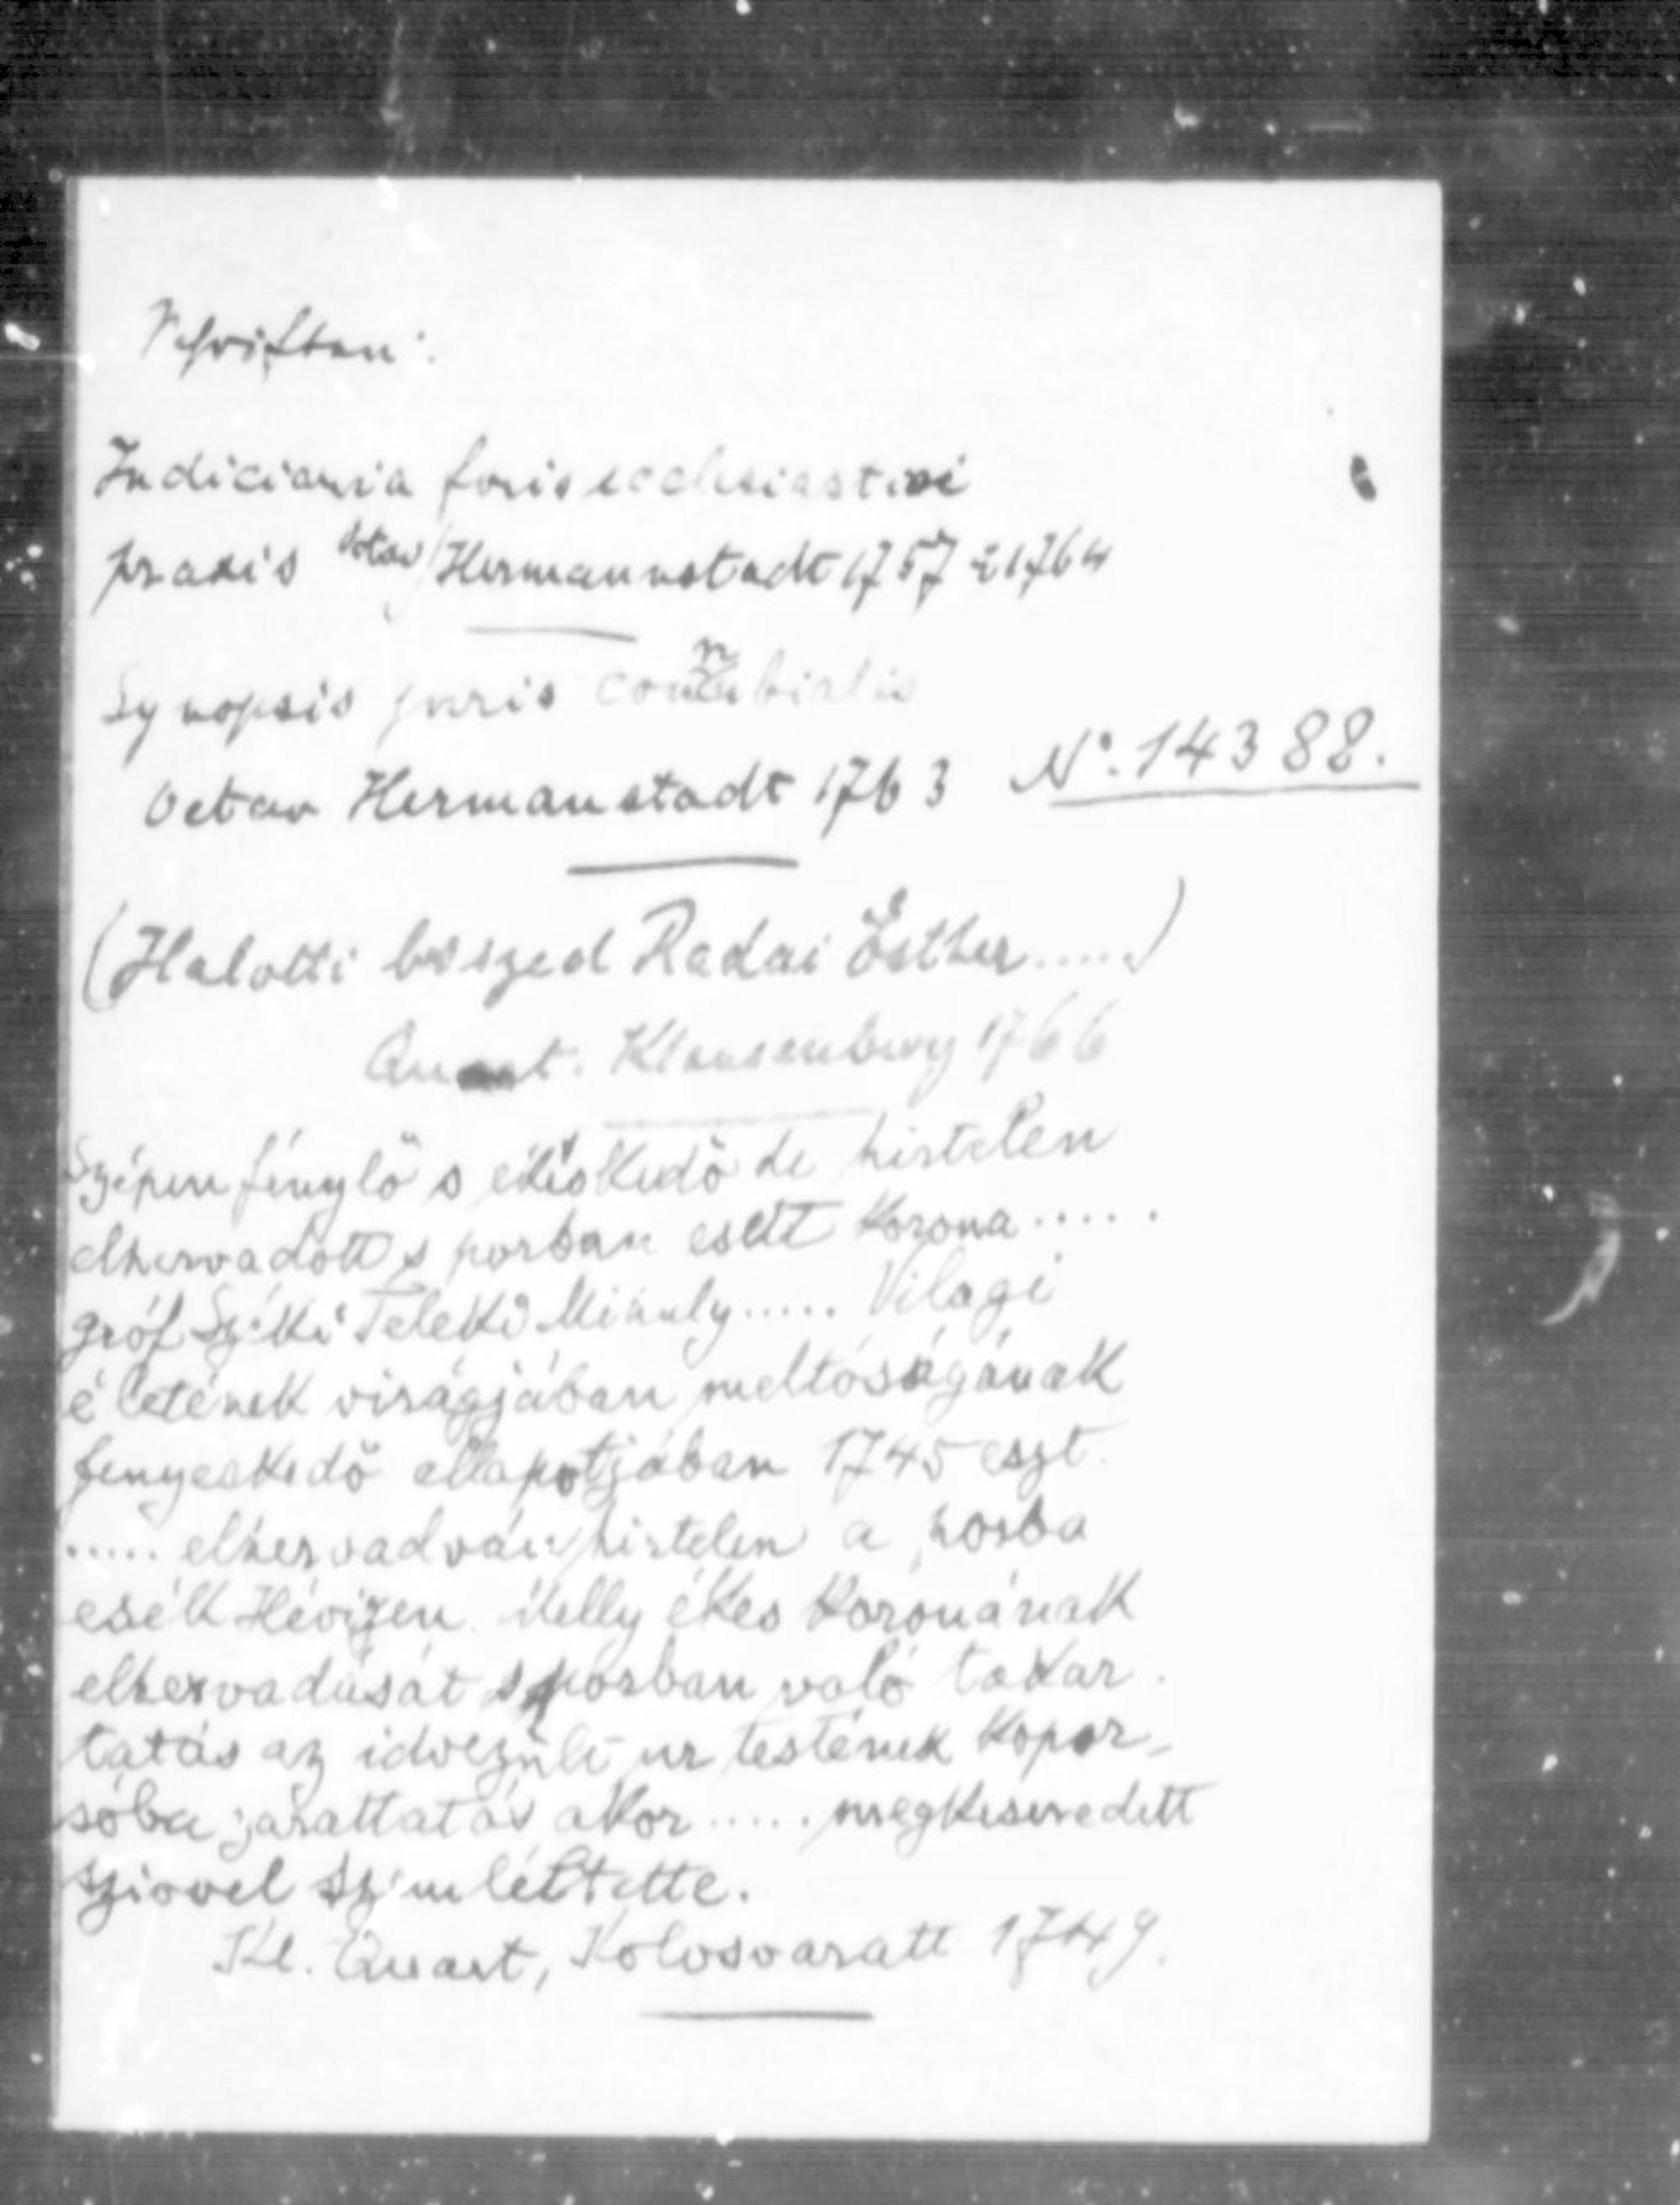 Schriften:
Indiciaria foris ecclesiastici
praxis Octav Hermannstadt 1757 & 1764
Synopsis juris connubialis
Octav Hermanstadt 1763 No. 14388.
(Halotti beszed Radai Esther.....)
Quart. Klausenburg 1766
Szépen fénylő s ékeskedő de hirtelen
elhervadott s porban esett Korona.....
gróf Széki Teleki Mihaly..... Vilagi
életének virágjában meltóságának
fenyeskedő allapotjában 1745 eszt.
..... elhervadván hirtelen a
esék Hévizen. Melly ékes koronának
elhervadását s porban való takar
tatás az idvezült ur testének kopor-
sóba zarattatás akor ..... megkeseredett
szivvel szemléltette.
Kl. Quart, Kolosvaratt 1749.